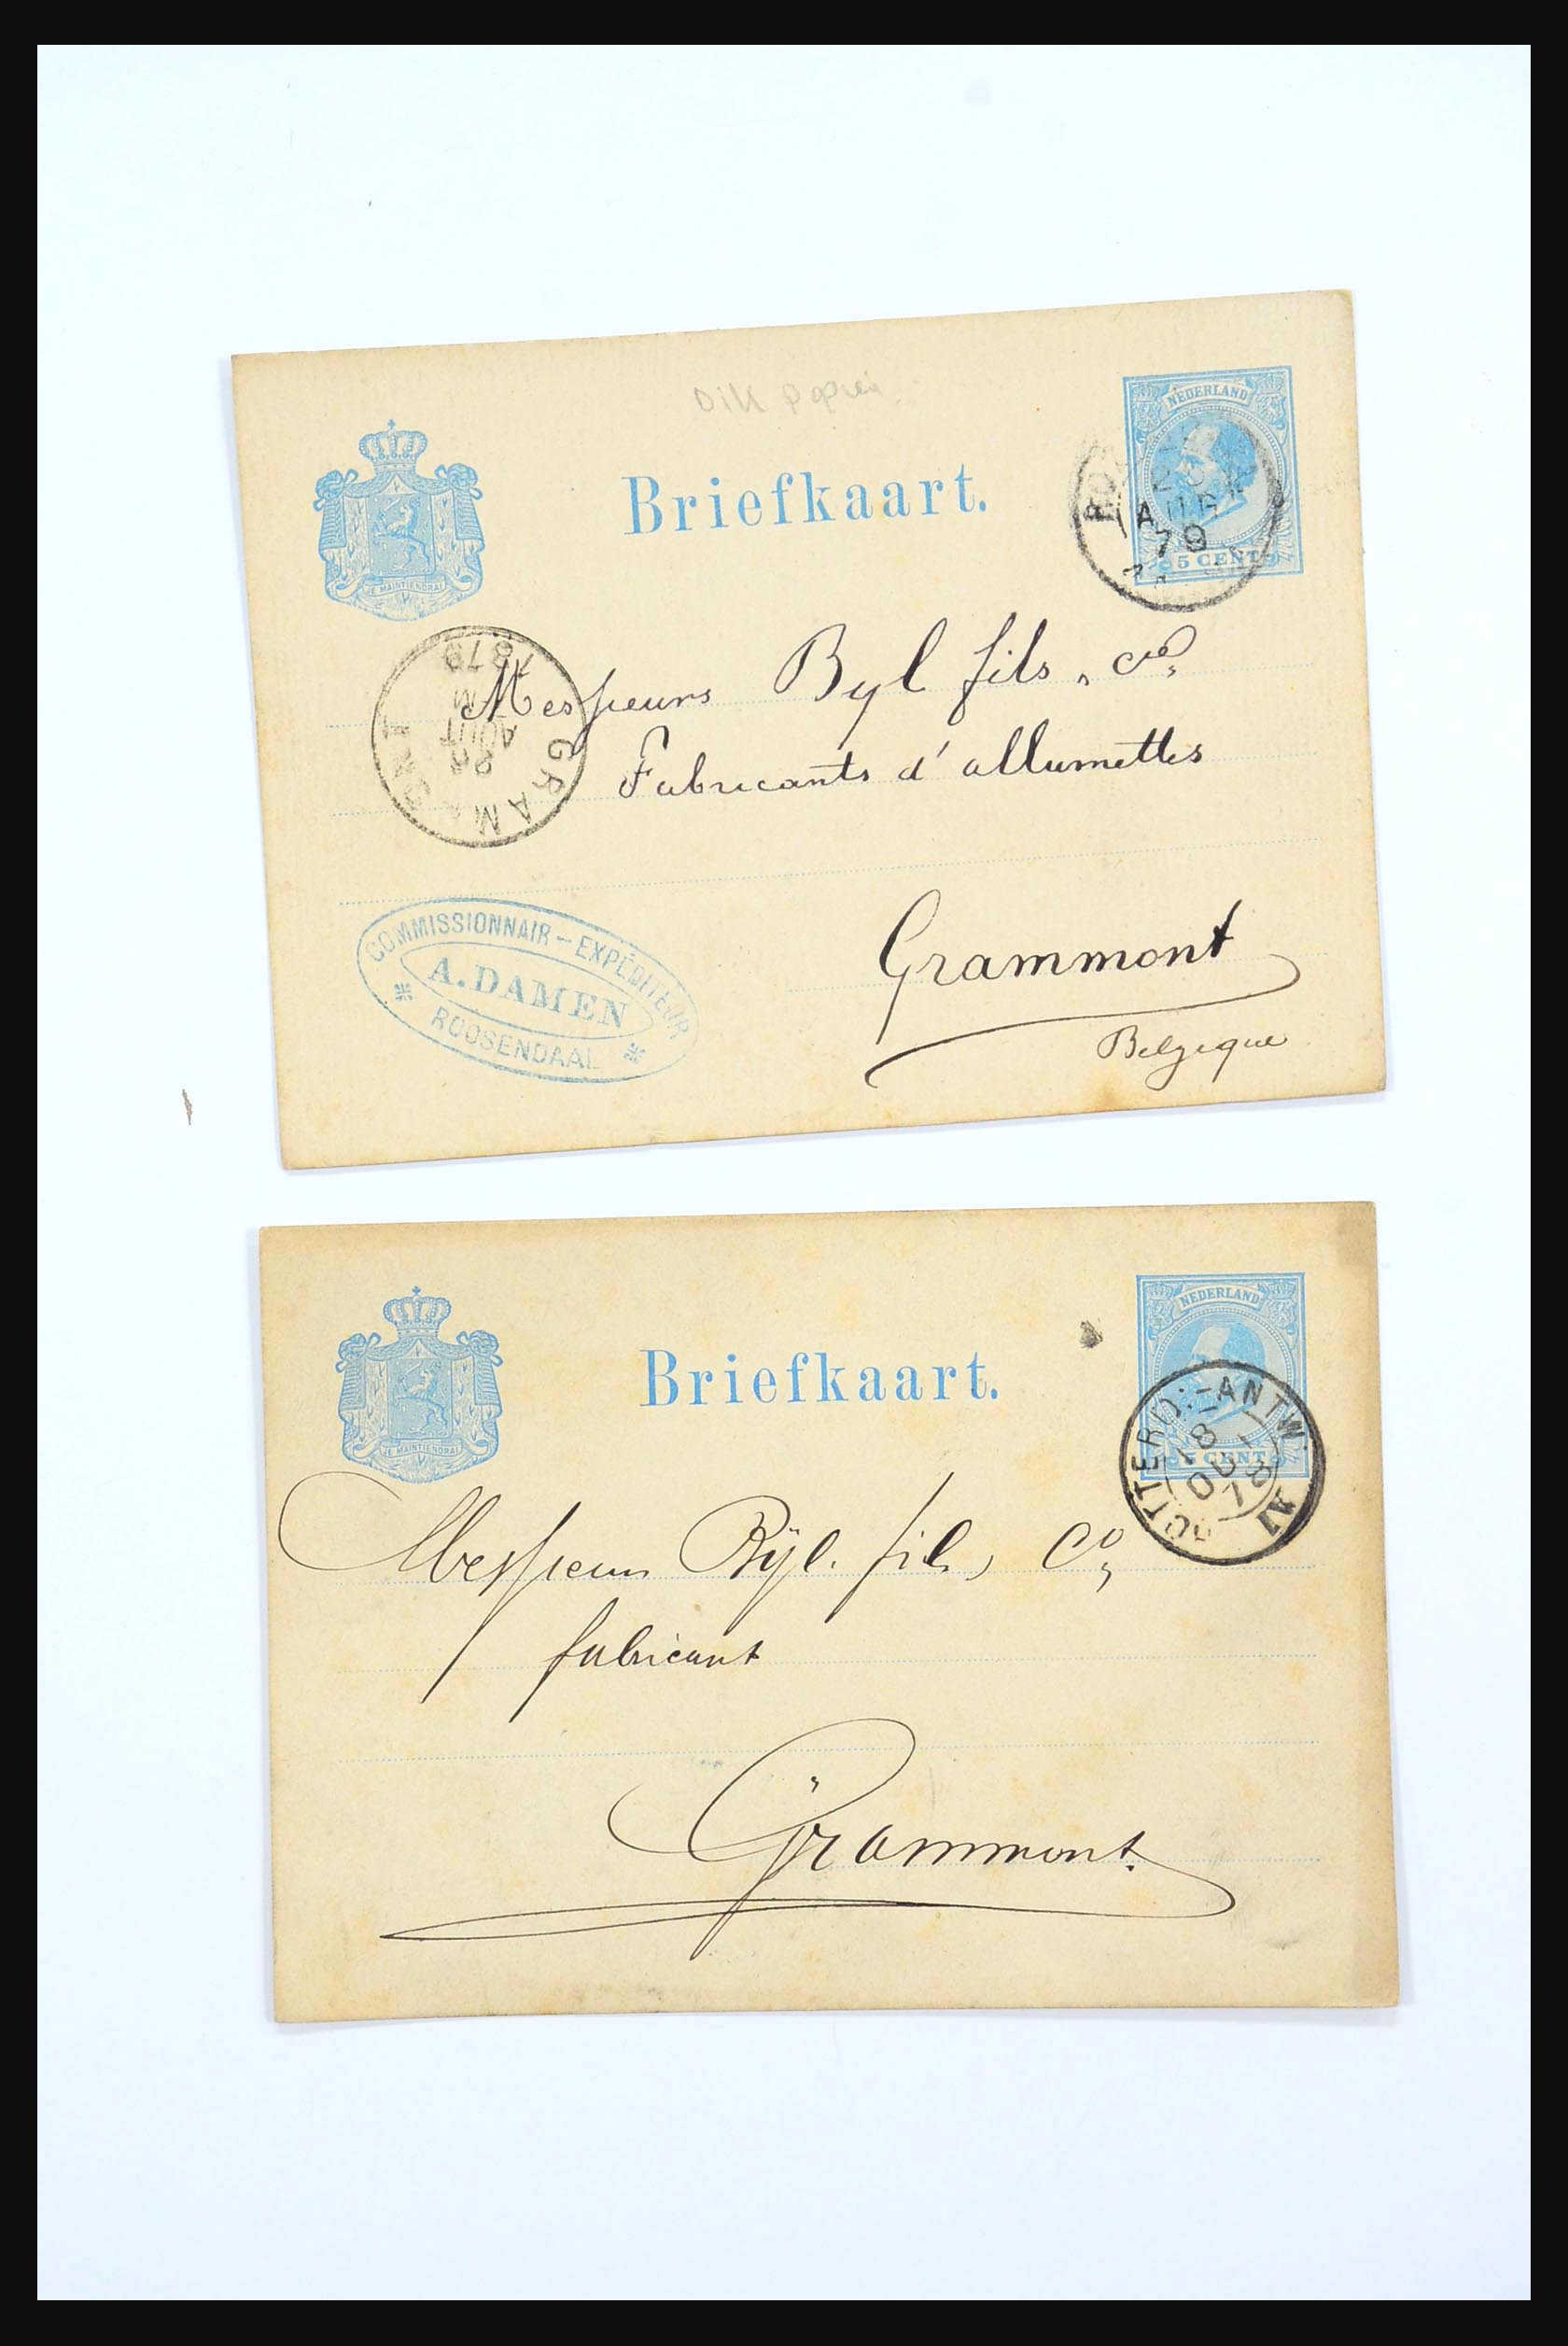 Dik papier
NEDERLAND
Briefkaart.
AUG
79
5 CENT
JE MAINTIENDRAI
1879
Messieurs Byl fils & Cie
AOUT
Fabricants d'allumettes
GRAM
COMMISSIONNAIR - EXPÉDITEUR
A. DAMEN
ROOSENDAAL
Grammont
Belgique
NEDERLAND
Briefkaart.
JE MAINTIENDRAI
5 CENT
ROTTERD:-ANTW. IV
18
78
Messieurs Bÿl. fils, Co,
fabricant
Grammont.